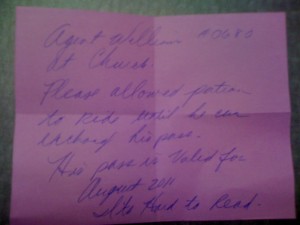 Agent William #0680
At Church.
Please allowed patron
to Ride until he can
exchange his pass.
His pass is Valid for
August 2011
Its Hard to Read.